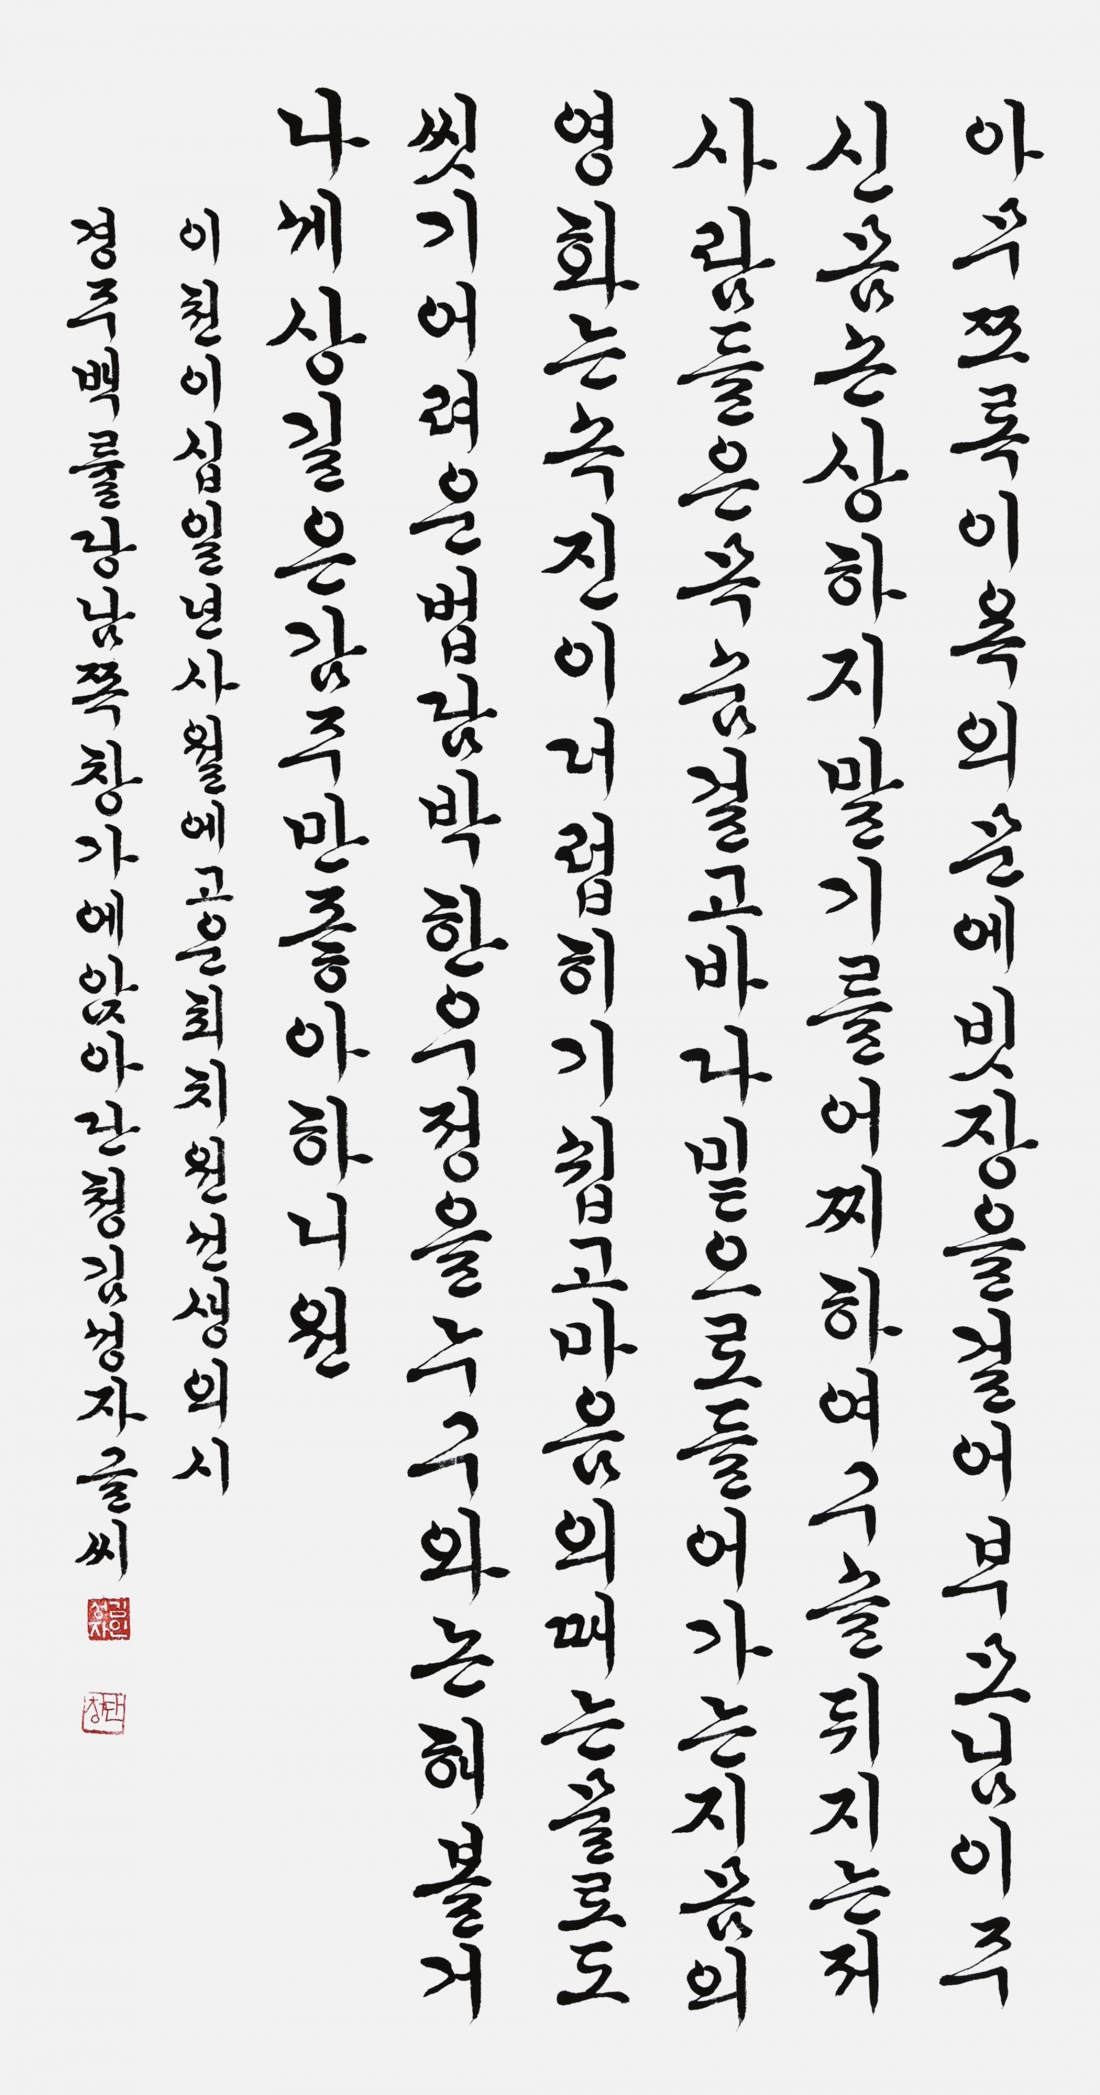 아무쪼록이욕의문에빗장을걸어부모님이주
신몸은상하지말기를어찌하여구슬뒤지는저
사람들은목숨걸고바다밑으로들어가는지몸의
영화는속진이더럽히기쉽고마음의때는물로도
씻기어려운법담박한우정을누구와논해볼거
나세상길은감주만좋아하니원
이천이십일년사월에고운최치원선생의시
경주백률당남쪽창가에앉아단청김성자글씨